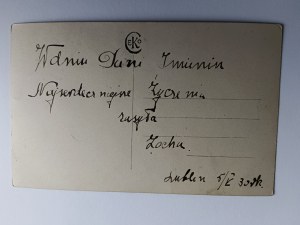 EKO
W dniu Pani Imienin
Najserdeczniejsze Życzenia
zasyła
Zocha
Lublin 5/V 30 rok